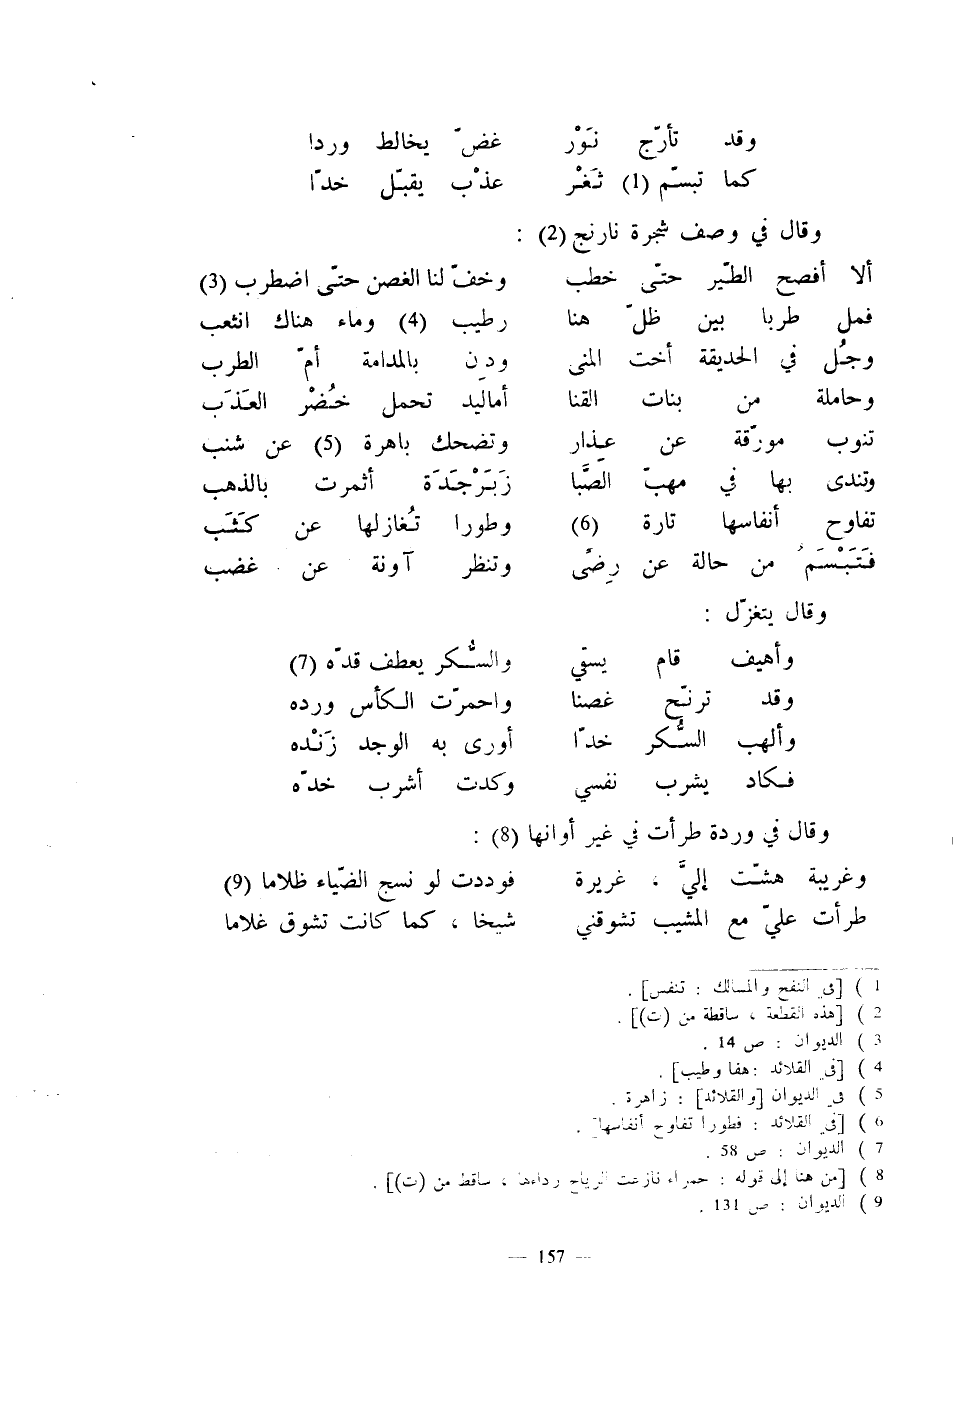 وقد تأرّج نَوْر غضّ يخالط وردا
كما تبسّم (1) ثَغْر عذْب يقبّل خدّا
وقال في وصف شجرة نارنج (2) :
ألا أفصح الطّير حتّى خطب وخفّ لنا الغصن حتّى اضطرب (3)
فمل طربا بين ظلّ هنا رطيب (4) وماء هناك انثعب
وجُل في الحديقة أخت المنى ودِن بالمدامة أمّ الطرب
وحاملة من بنات القنا أماليد تحمل خُضْر العَذَب
تنوب مورّقة عن عِذار وتضحك باهرة (5) عن شنب
وتندى بها في مهبّ الصَّبا زَبَرْجَدَة أثمرت بالذهب
تفاوح أنفاسها تارة (6) وطورا تُغازلها عن كَثَب
فَتَبْسَمُ من حالة عن رِضًى وتنظر آونة عن غضب
وقال يتغزّل :
وأهيف قام يسقي والسُّكر يعطف قدّه (7)
وقد ترنّح غصنا واحمرّت الكأس ورده
وألهب السُّكر خدّا أورى به الوجد زَنْده
فكاد يشرب نفسي وكدت أشرب خدّه
وقال في وردة طرأت في غير أوانها (8) :
وغريبة هشّت إليَّ ، غريرة فوددت لو نسج الضّياء ظلاما (9)
طرأت عليّ مع المشيب تشوقني شيخا ، كما كانت تشوق غلاما
1 ) [في النفح والمسالك : تنفس] .
2 ) [هذه القطعة ، ساقطة من (ت)] .
3 ) الديوان : ص 14 .
4 ) [في القلائد : هفا وطيب] .
5 ) في الديوان [والقلائد] : زاهرة .
6 ) [في القلائد : فطورا تفاوح أنفاسها] .
7 ) الديوان : ص 58 .
8 ) [من هنا إلى قوله : حمراء نازعت الرياح رداءها ، ساقط من (ت)] .
9 ) الديوان : ص 131 .
— 157 —